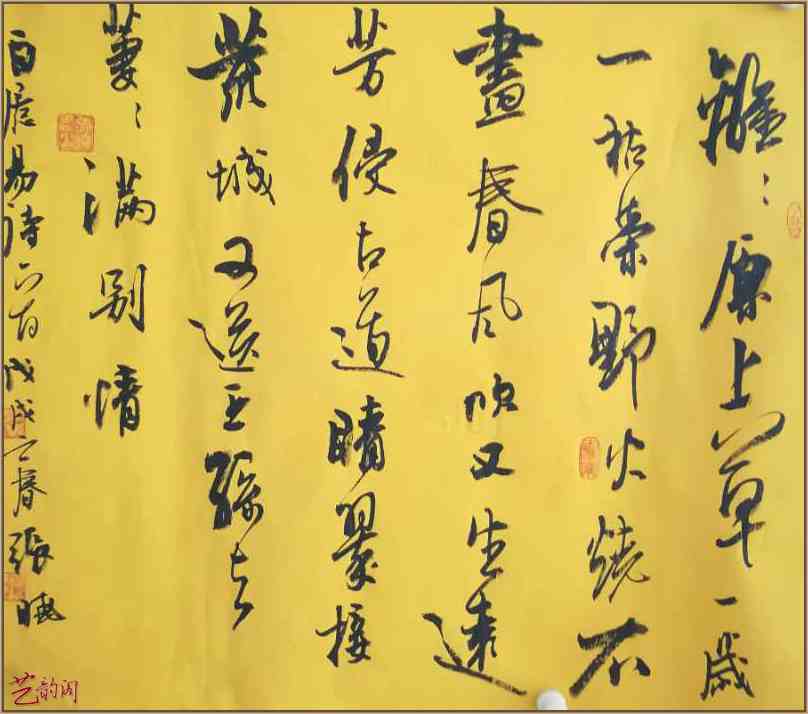 離〻原上草一歲
一枯榮野火燒不
盡春风吹又生遠
芳侵古道晴翠接
荒城又送王孫去
萋〻满别情
白居易诗 戊戌 春張曉
艺韵阁